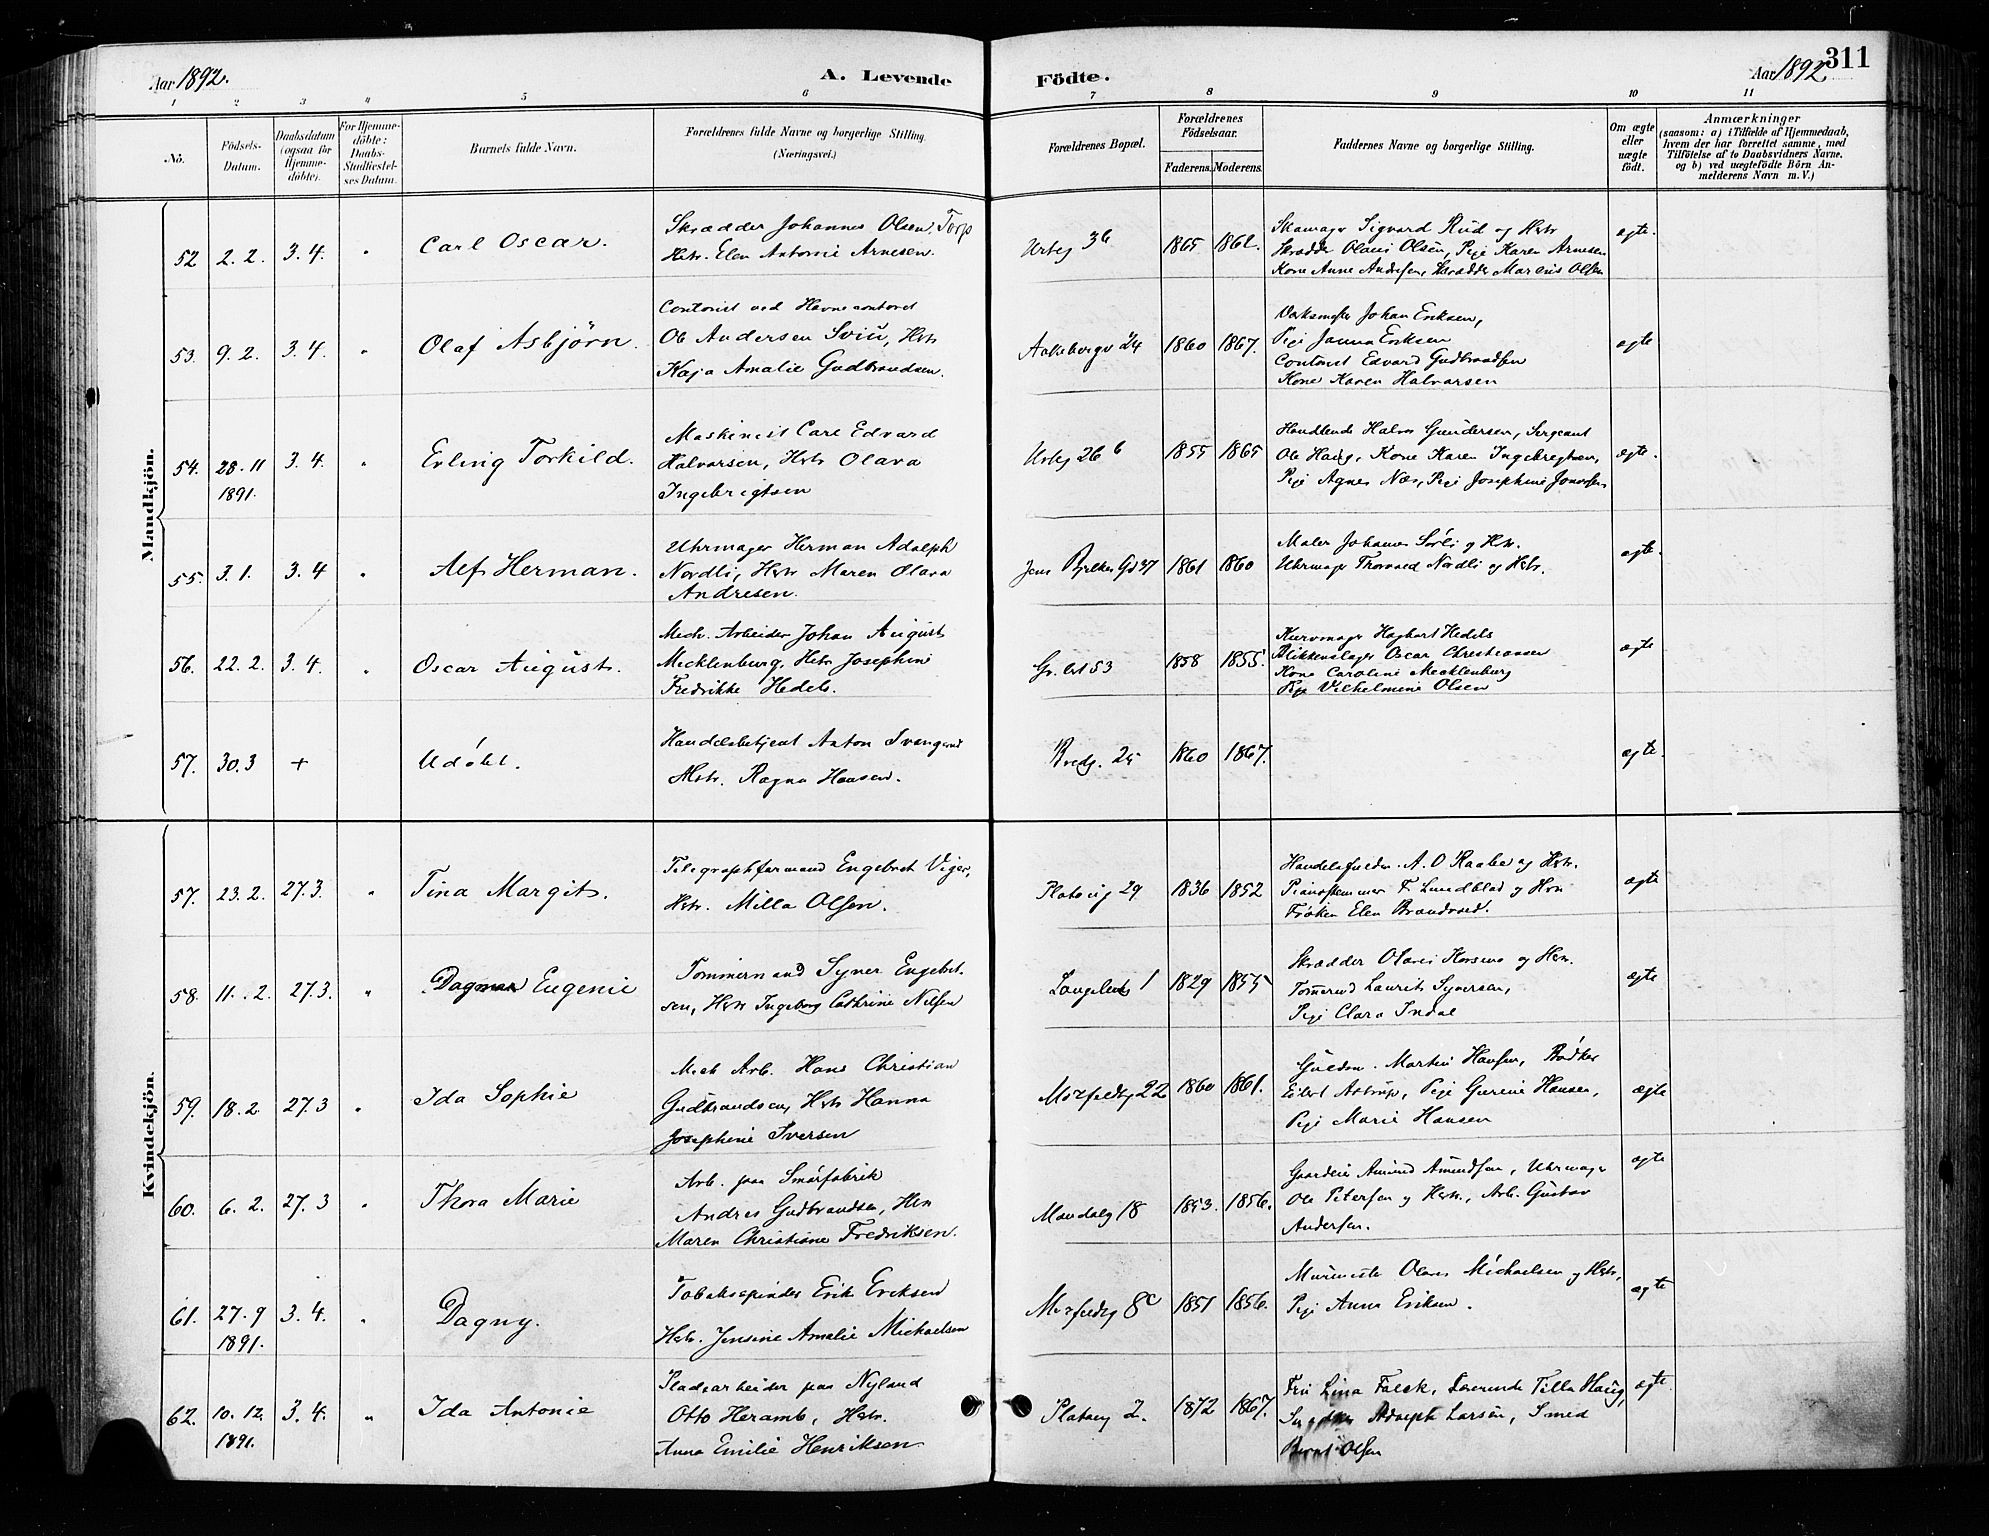 Aar 1892.
A. Levende
Födte.
Aar 1892.
311
1 2 3 4 5 6 7 8 9 10 11
No.
Födsels-Datum.
Daabsdatum (ogsaa for Hjemme-döbte).
For Hjemme-döbte: Daabs-Stadfæstel-ses Datum.
Barnets fulde Navn.
Forældrenes fulde Navne og borgerlige Stilling.
(Næringsvei.)
Forældrenes Bopæl.
Forældrenes Födselsaar.
Faderens. Moderens.
Faddernes Navne og borgerlige Stilling.
Om ægte eller uægte födt.
Anmærkninger
(saasom: a) i Tilfælde af Hjemmedaab,
hvem der har forrettet samme, med
Tilföielse af to Daabsvidners Navne,
og b) ved uægtefödte Börn An-
melderens Navn m. V.)
Mandkjön.
52 2.2. 3.4. " Carl Oscar.
Skrædder Johannes Olsen Torp
Hstr. Elen Antonie Arnesen.
Urteg 36 1865 1862.
Skomager Sigvard Rud og Hstr
Skrædder Olaus Olsen, Pige Karen Arnesen
Kone Anne Andersen, Skrædder Marius Olsen
ægte.
53. 9.2. 3.4. " Olaf Asbjörn.
Contorist ved Havnecontoret
Ole Andersen Sviu, Hstr
Kaja Amalie Gudbrandsen.
Aakebergv 24 1860 1867.
Verksmester Johan Eriksen,
Pige Janna Eriksen
Contorist Edvard Gudbrandsen
Kone Karen Halvorsen
ægte
54. 28.11 1891. 3.4. " Erling Torkild.
Maskinist Carl Edvard
Halvorsen, Hstr Olava
Ingebrigtsen
Urteg 26 b 1855 1865
Handlende Halvor Gundersen, Sergeant
Ole Haug, Kone Karen Ingebrigtsen,
Pige Agnes Næs, Pige Josephine
ægte.
55. 3.1. 3.4 " Alf Herman.
Uhrmager Herman Adolph
Nordli, Hstr Maren Olava
Andresen.
Jens Bjelkes Gd 37 1861 1860
Maler Johannes Sørli og Hstr.
Uhrmager Thorvald Nordli og Hstr.
ægte.
56. 22.2. 3.4. " Oscar August.
Mech. Arbeider Johan August
Mecklenburg, Hstr Josephine
Fredrikke Hedels.
Gr. 53 1858 1855.
Kurvmager Hagbart Hedels
Blikkenslager Oscar Christiansen
Kone Caroline Mecklenburg
Pige Vilhelmine Olsen
ægte
57. 30.3 + Udöbt.
Handelsbetjent Anton
Hstr. Ragna Hansen.
Bredg. 25 1860 1867.
ægte.
Kvindekjön.
57. 23.2. 27.3. " Tina Margit.
Telegraphformand Engebret Viger,
Hstr. Milla Olsen.
Platoug 29 1836 1852
A. O Raabe og Hstr.
Pianostemmer F. Lundblad og Hstr
Frøken Elen
ægte
58. 11.2. 27.3. " Dagmar Eugenie
Tømmermand Syver Engebret-
sen, Hstr Ingeborg Cathrine Nilsen
Langeleds 1 1829 1855
Skrædder Olaves og Hstr.
Tømmermd Laurits Syversen,
Pige Clara Indal
ægte
59. 18.2. 27.3 " Ida Sophie
Mech Arb. Hans Christian
Gudbrandsen, Hstr Hanna
Josephine Iversen
Motzfeldtg 22 1860 1861.
Guldsm. Martin Hansen, Bødker
Eilert Astrup, Pige Gurine Hansen,
Pige Marie Hansen
ægte
60. 6.2. 27.3 " Thora Marie
Arb. paa Smörfabrik
Andres Gudbrandsen, Hstr
Maren Christiane Fredriksen.
Mandalg 18 1853. 1856.
Gaardeier Amund Amundsen, Uhrmager
Ole Petersen og Hstr., Arb. Gustav
Andersen.
ægte
61. 27.9 1891. 3.4. " Dagny.
Tobakspinder Erik Eriksen
Hstr. Jensine Amalie Michaelsen
Motzfeldtg 8c 1851 1856.
Murmester Olaves Michaelsen og Hstr,
Pige Anna Eriksen.
ægte
62. 10.12. 1891. 3.4. " Ida Antonie
Pladsarbeider paa Nyland
Otto Heramb, Hstr.
Anna Emilie Henriksen
Platoug 2. 1872 1867.
Fru Lina Falck, Tilla Haug,
Adolph Larsen, Smed
Bernt Olsen
ægte.